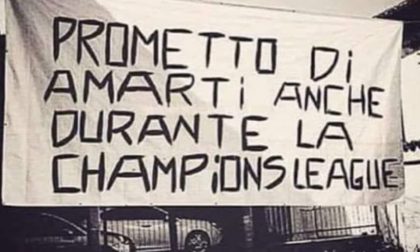 PROMETTO Di
AMARTi ANCHE
DURANTE LA
CHAMPiONS LEAGUE